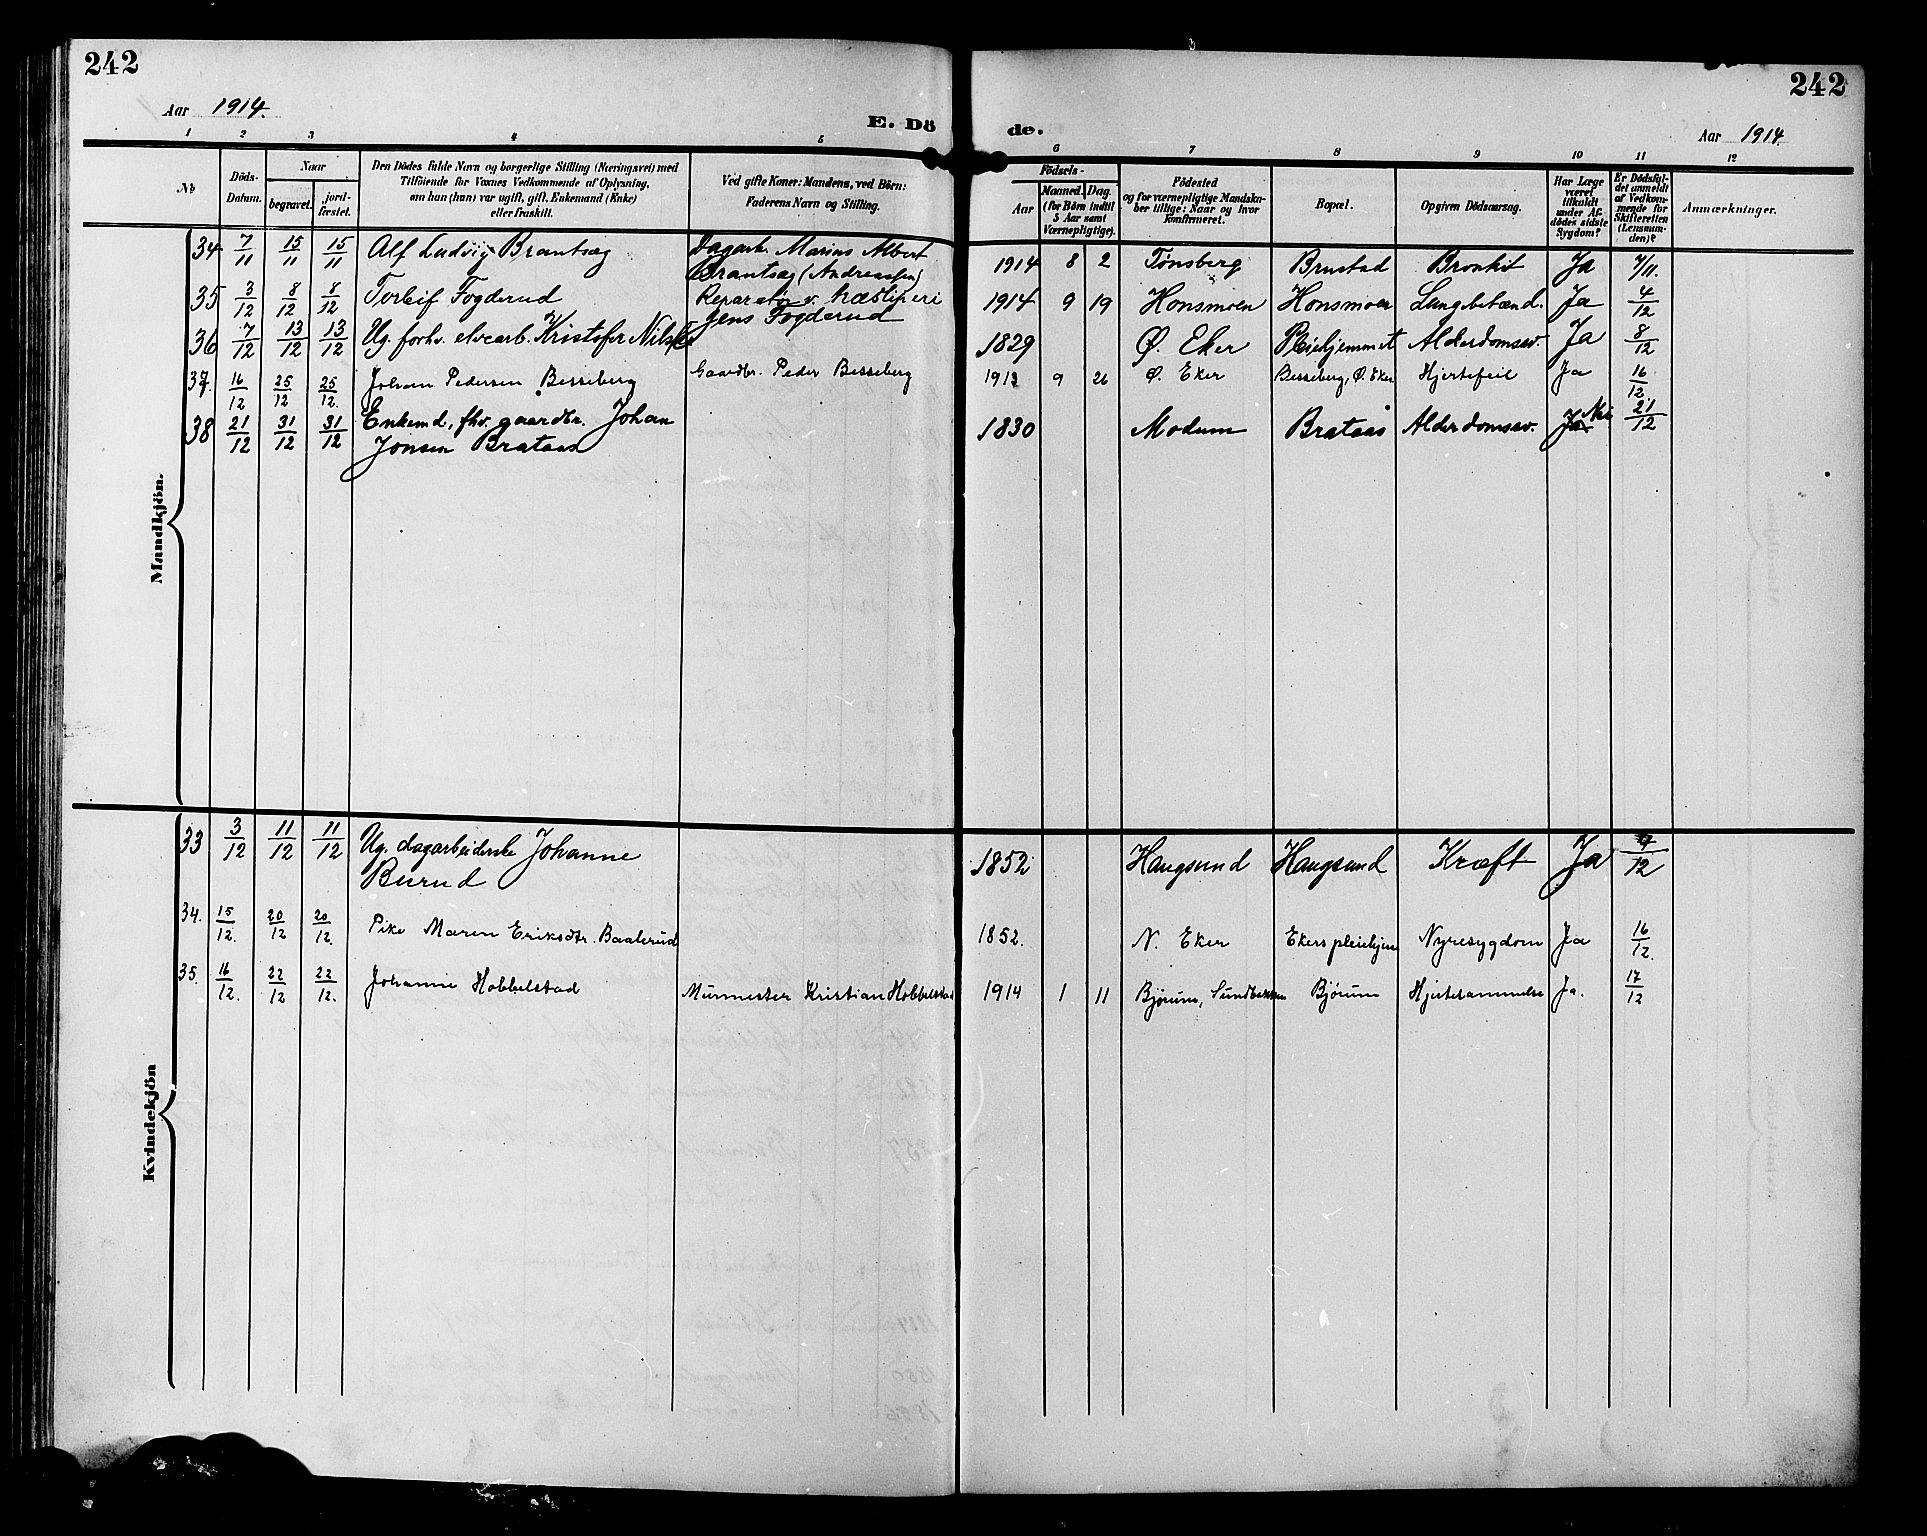 242
242
Aar 1914.
E. Dö
de.
Aar 1914.
1 2 3 4 5 6 7 8 9 10 11 12
No
Döds-Datum.
Naar
begravet.
jord-fæstet.
Den Dödes fulde Navn og borgerlige Stilling (Næringsvei) med
Tilföiende for Voxnes Vedkommende af Oplysning,
om han (hun) var ugift, gift, Enkemand (Enke)
eller fraskilt.
Ved gifte Koner: Mandens, ved Börn:
Faderens Navn og Stilling.
Födsels-
Aar
Maaned. Dag.
(for Börn indtil
5 Aar samt
Værnepligtige).
Födested
og for værnepligtige Mandskaber tillige: Naar og hvor
konfirmeret.
Bopæl.
Opgiven Dödsaarsag.
Har Læge
været
tilkaldt
under Afdödes sidste
Sygdom?
Er Dödsfaldet anmeldt
af Vedkommende for
Skifteretten
(Lensmanden)?
Anmærkninger.
Mandkjön.
34 7/11 15/11 15/11 Alf Ludvig Brantsæg Dagarb. Marius Albert 1914 8 2 Tønsberg Brustad Bronkit Ja 7/11.
Brantsæg (Andreassen)
35 3/12 8/12 8/12 Torleif Fogderud Reparatør v. træsliperi 1914 9 19 Honsmoen Honsmoen Lungebetænd. Ja 4/12
Jens Fogderud
36 7/12 13/12 13/12 Ug. forhv. elvearb. Kristofer Nilsen 1829 Ø. Eker Pleiehjemmet Alderdomssv. Ja 8/12
37. 16/12 25/12 25/12. Johan Pedersen Besseberg Gaardbr. Peder Besseberg 1913 9 26 Ø. Eker Besseberg, Ø. Eker Hjertefeil Ja 16/12.
38 21/12 31/12 31/12 Enkemd, fhv. gaardbr. Johan 1830 Modum Brataas Alderdomssv. Ja Nei 21/12
Jonsen Brataas
Kvindekjön
33 3/12 11/12 11/12 Ug. dagarbeiderske Johanne 1852. Haugsund Haugsund Kræft Ja 4/12
Burud
34. 15/12. 20/12 20/12. Pike Maren Eriksdtr. Baalerud 1852. N. Eker Ekers pleiehjem Nyresygdom Ja 16/12.
35. 16/12. 22/12 22/12. Johanne Hobbelstad Murmester Kristian Hobbelstad 1914 1 11 Bjørum, Sundbakken Bjørum Hjertelammelse Ja. 17/12